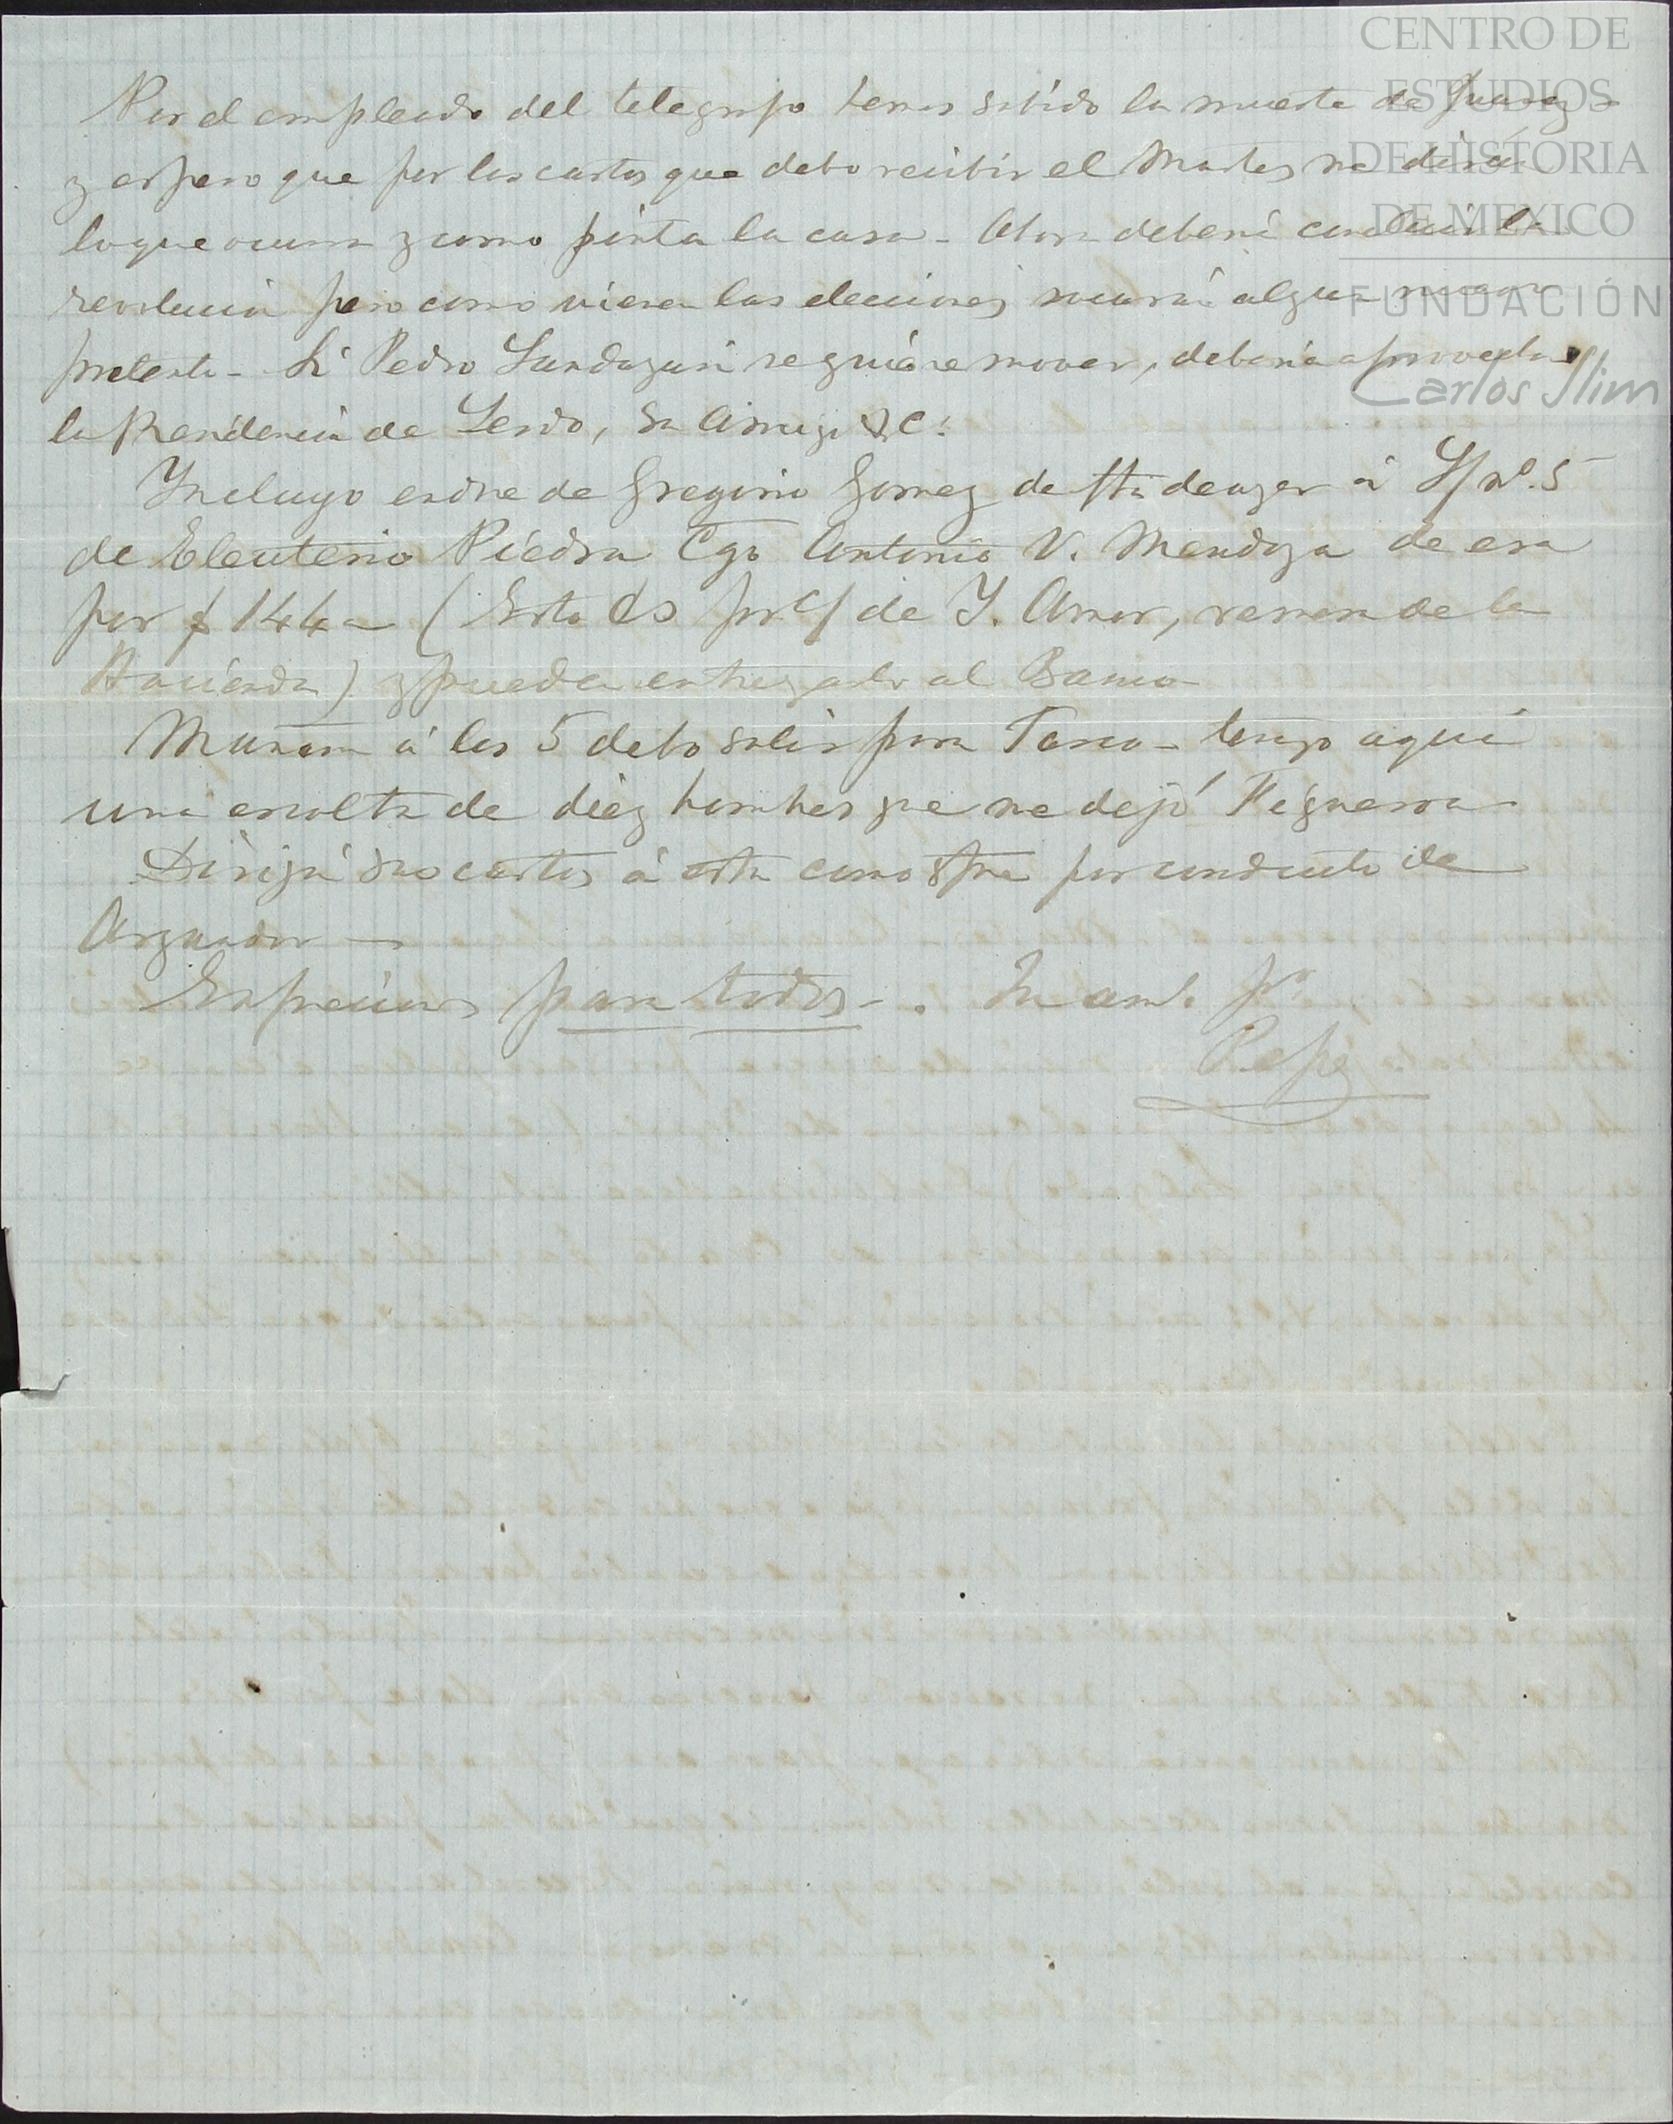 CENTRO DE
ESTUDIOS
DE HISTORIA
DE MEXICO
FUNDACIÓN
Carlos Slim
Por el empleado del telegrafo hemos sabido la muerte de Juarez -
y espero que por las cartas que debo recibir el Martes me dirá
lo que ocurra y como pinta la cosa - Ahora deberá concluir la
revolucion pero como viene las elecciones sacará algun nuevo
pretexto - Si Pedro Landazuri se quiere mover, deberia aprovechar
la Presidencia de Lerdo, su amigo &c.
Incluyo orden de Gregorio Gomez de á L/ nº. 5
de Eleuterio Piedra Cgo Antonio V. Mendoza de esa
por $ 144 - (Esto es por c/ de Y. Amor, remesa de la
Hacienda) y puede entregarlo al Banco
Mañana á las 5 debo salir para Tasco - tengo aquí
una escolta de diez hombres que me dejó Figueroa -
Dirija sus cartas á esta como spre por conducto de
Arguador -
Expreciones para todos - . Su am.
Pepe